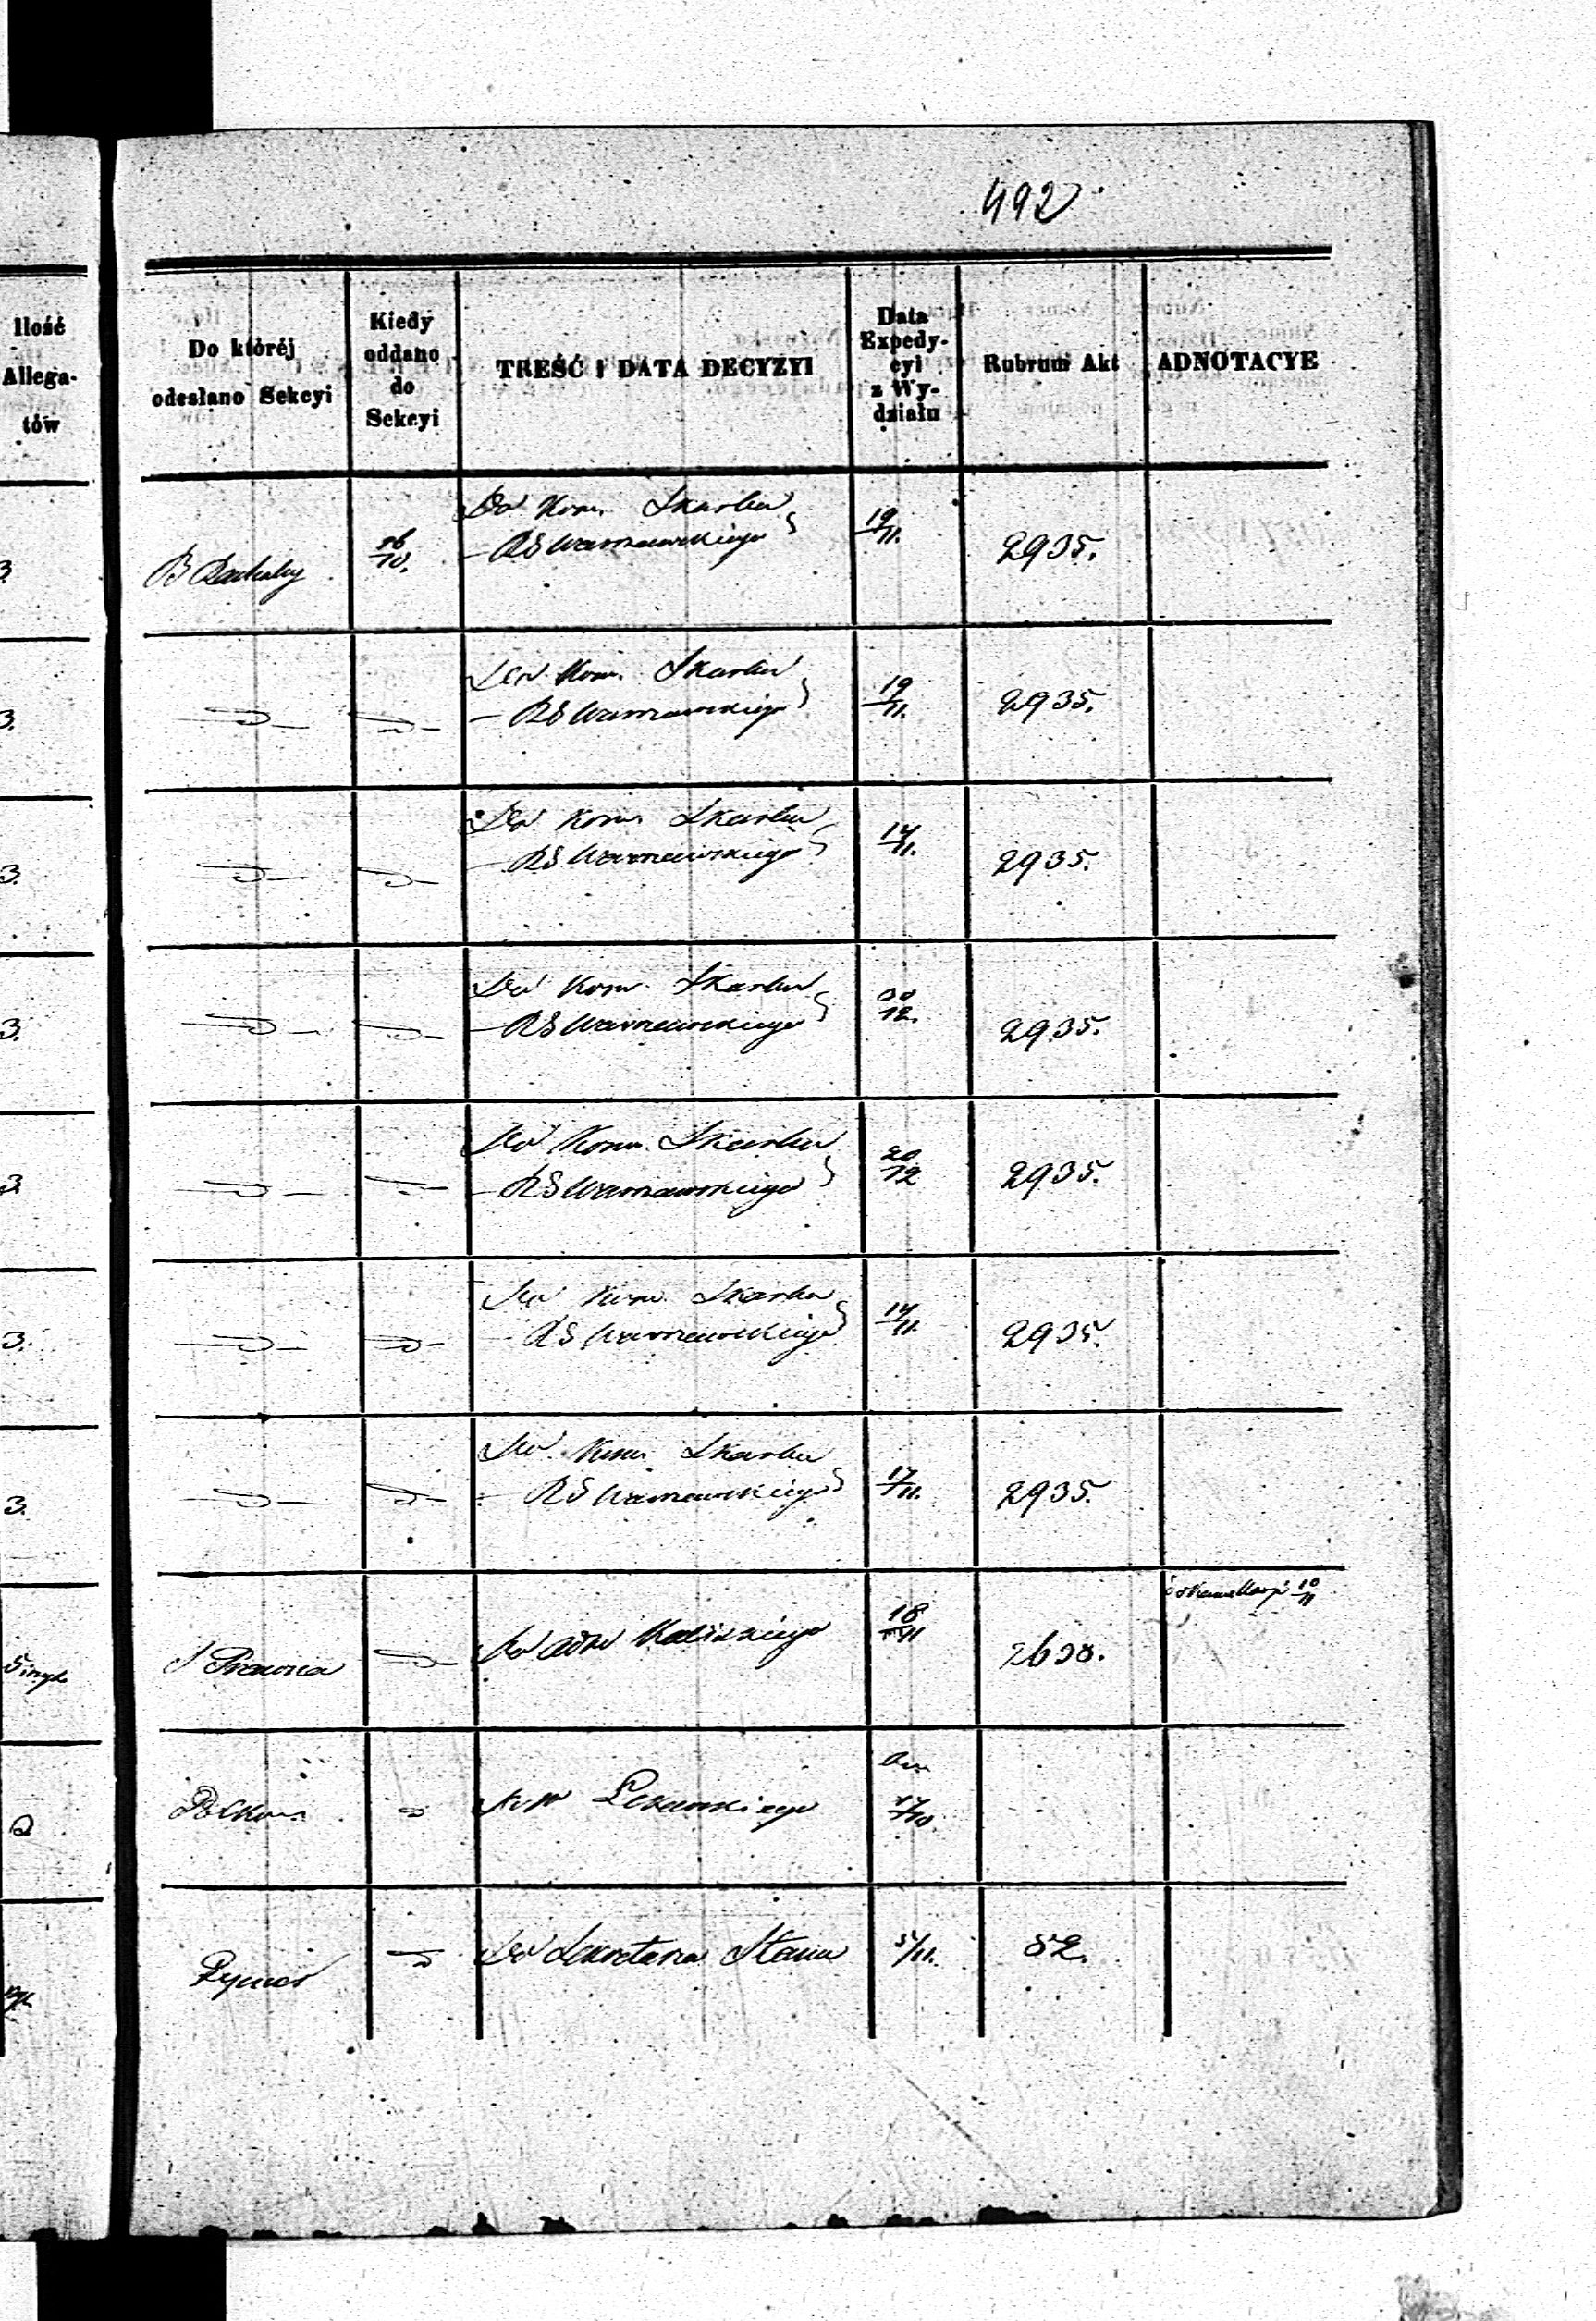 492
Ilość
Allega-
tów
Do któréj
odesłano Sekcyi
Kiedy
oddano
do
Sekcyi
TREŚĆ I DATA DECYZYI
Data
Expedy-
cyi
z Wy-
działu
Rubrum Akt
ADNOTACYE
3.
B
26/10.
Do Kom. Skarbu
RG Warszawskiego
19/11.
2935.
3.
Do Kom. Skarbu
RG Warszawskiego
19/11.
2935.
3.
Do Kom. Skarbu
RG Warszawskiego
14/11.
2935.
3.
Do Kom. Skarbu
RG Warszawskiego
12.
2935.
3.
Do Kom. Skarbu
RG Warszawskiego
20/12
2935.
3.
Do Kom. Skarbu
RG Warszawskiego
14/11.
2935.
3.
Do Kom. Skarbu
RG Warszawskiego
17/11.
2935.
10/11
Prawna
Kaliskiego
18/11
17/10.
Do Sekretarza Stanu
5/11.
52.